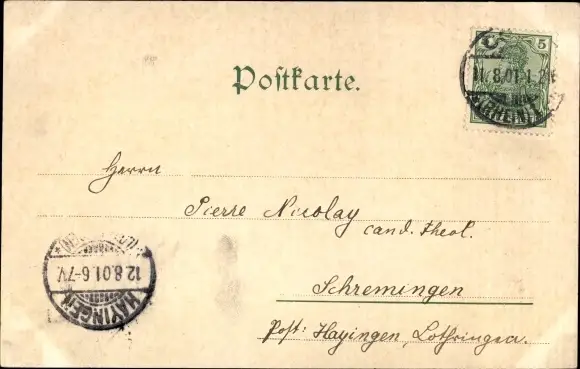 5
11.8.01.1-2N
(RHEIN)
Postkarte.
Herrn
Pierre Nicolay
cand. theol.
Schremingen
Post: Hayingen, Lothringen.
12.8.01.6-7V
HAYINGEN